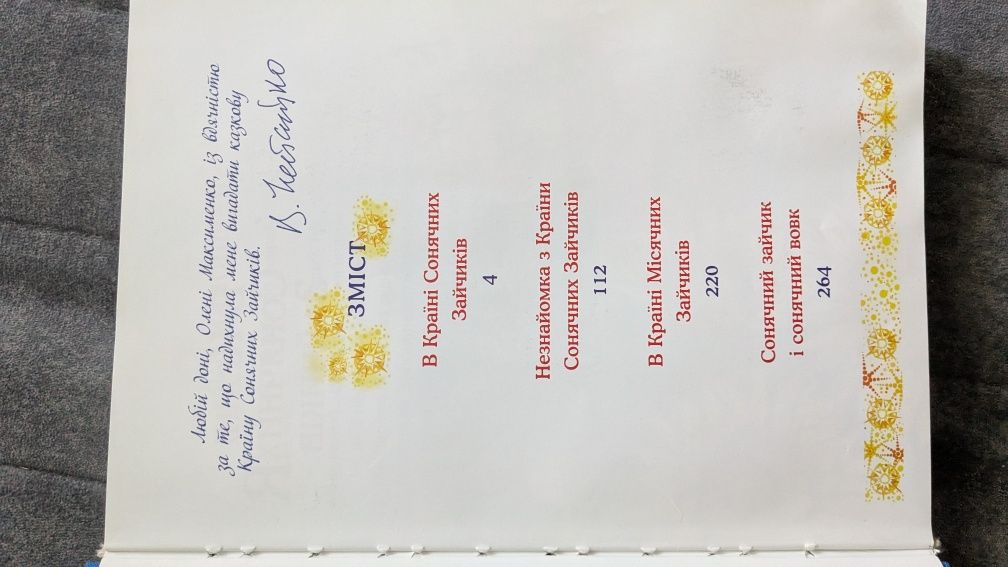 Любій доні, Олені Максименко, із вдячністю
за те, що надихнула мене вигадати казкову
Країну Сонячних Зайчиків.
В. Нестайко
ЗМІСТ
В Країні Сонячних
Зайчиків
4
Незнайомка з Країни
Сонячних Зайчиків
112
В Країні Місячних
Зайчиків
220
Сонячний зайчик
і сонячний вовк
264